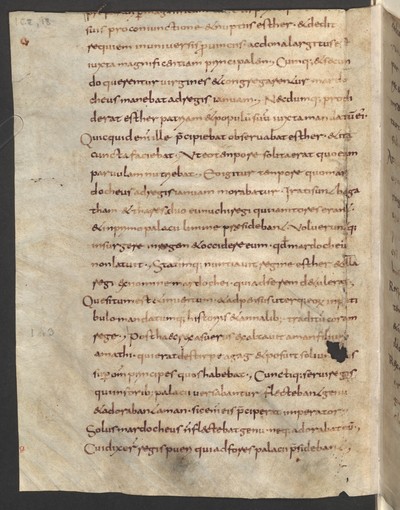 suis pro coniunctione & nuptiis esther. & dedit
requiem uniuersis puinciis. ac dona largitus est
iuxta magnificentiam principalem. Cumq; & secun
do quererentur virgines & congregarentur mardo
cheus manebat ad regis ianuam. Necdumq; prodi
derat esther patriam & populū suū iuxta mandatū ei'
Quicquid enī ille p̄cipiebat observabat esther. & ita
cuncta faciebat. Ut eo tempore solita erat quo eam
paruulam nutriebat. Eo igitur tempore quo mar
docheus ad regis ianuam morabatur. Irati sunt baga
than & thares duo eunuchi regis qui ianitores erant
& in primo palacii limine presidebant. Volueruntq;
insurgere in regem & occidere eum. qd mardocheū
non latuit. Statimq; nuntiauit regine esther & illa
regi ex nomine mardochei. qui ad se rem detulerat.
Quesitum est & inuentum. & adpensus uterq; eoꝝ in pati
bulo. mandatumq; historiis & annalib; traditū coram
rege. Post hec rex asuerus exaltauit aman filium
amathi. qui erat de stirpe agag. & posuit soliū
sup om̄s principes quos habebat. Cunctiq; serui regis
qui in forib; palacii versabantur. flectebant genu
& adorabant aman. sic enī eis p̄ceperat imperator.
Solus mardocheus n̄ flectebat genu. neq; adorabat eū.
Cui dixer̄ regis pueri qui ad fores palacii p̄sidebant.